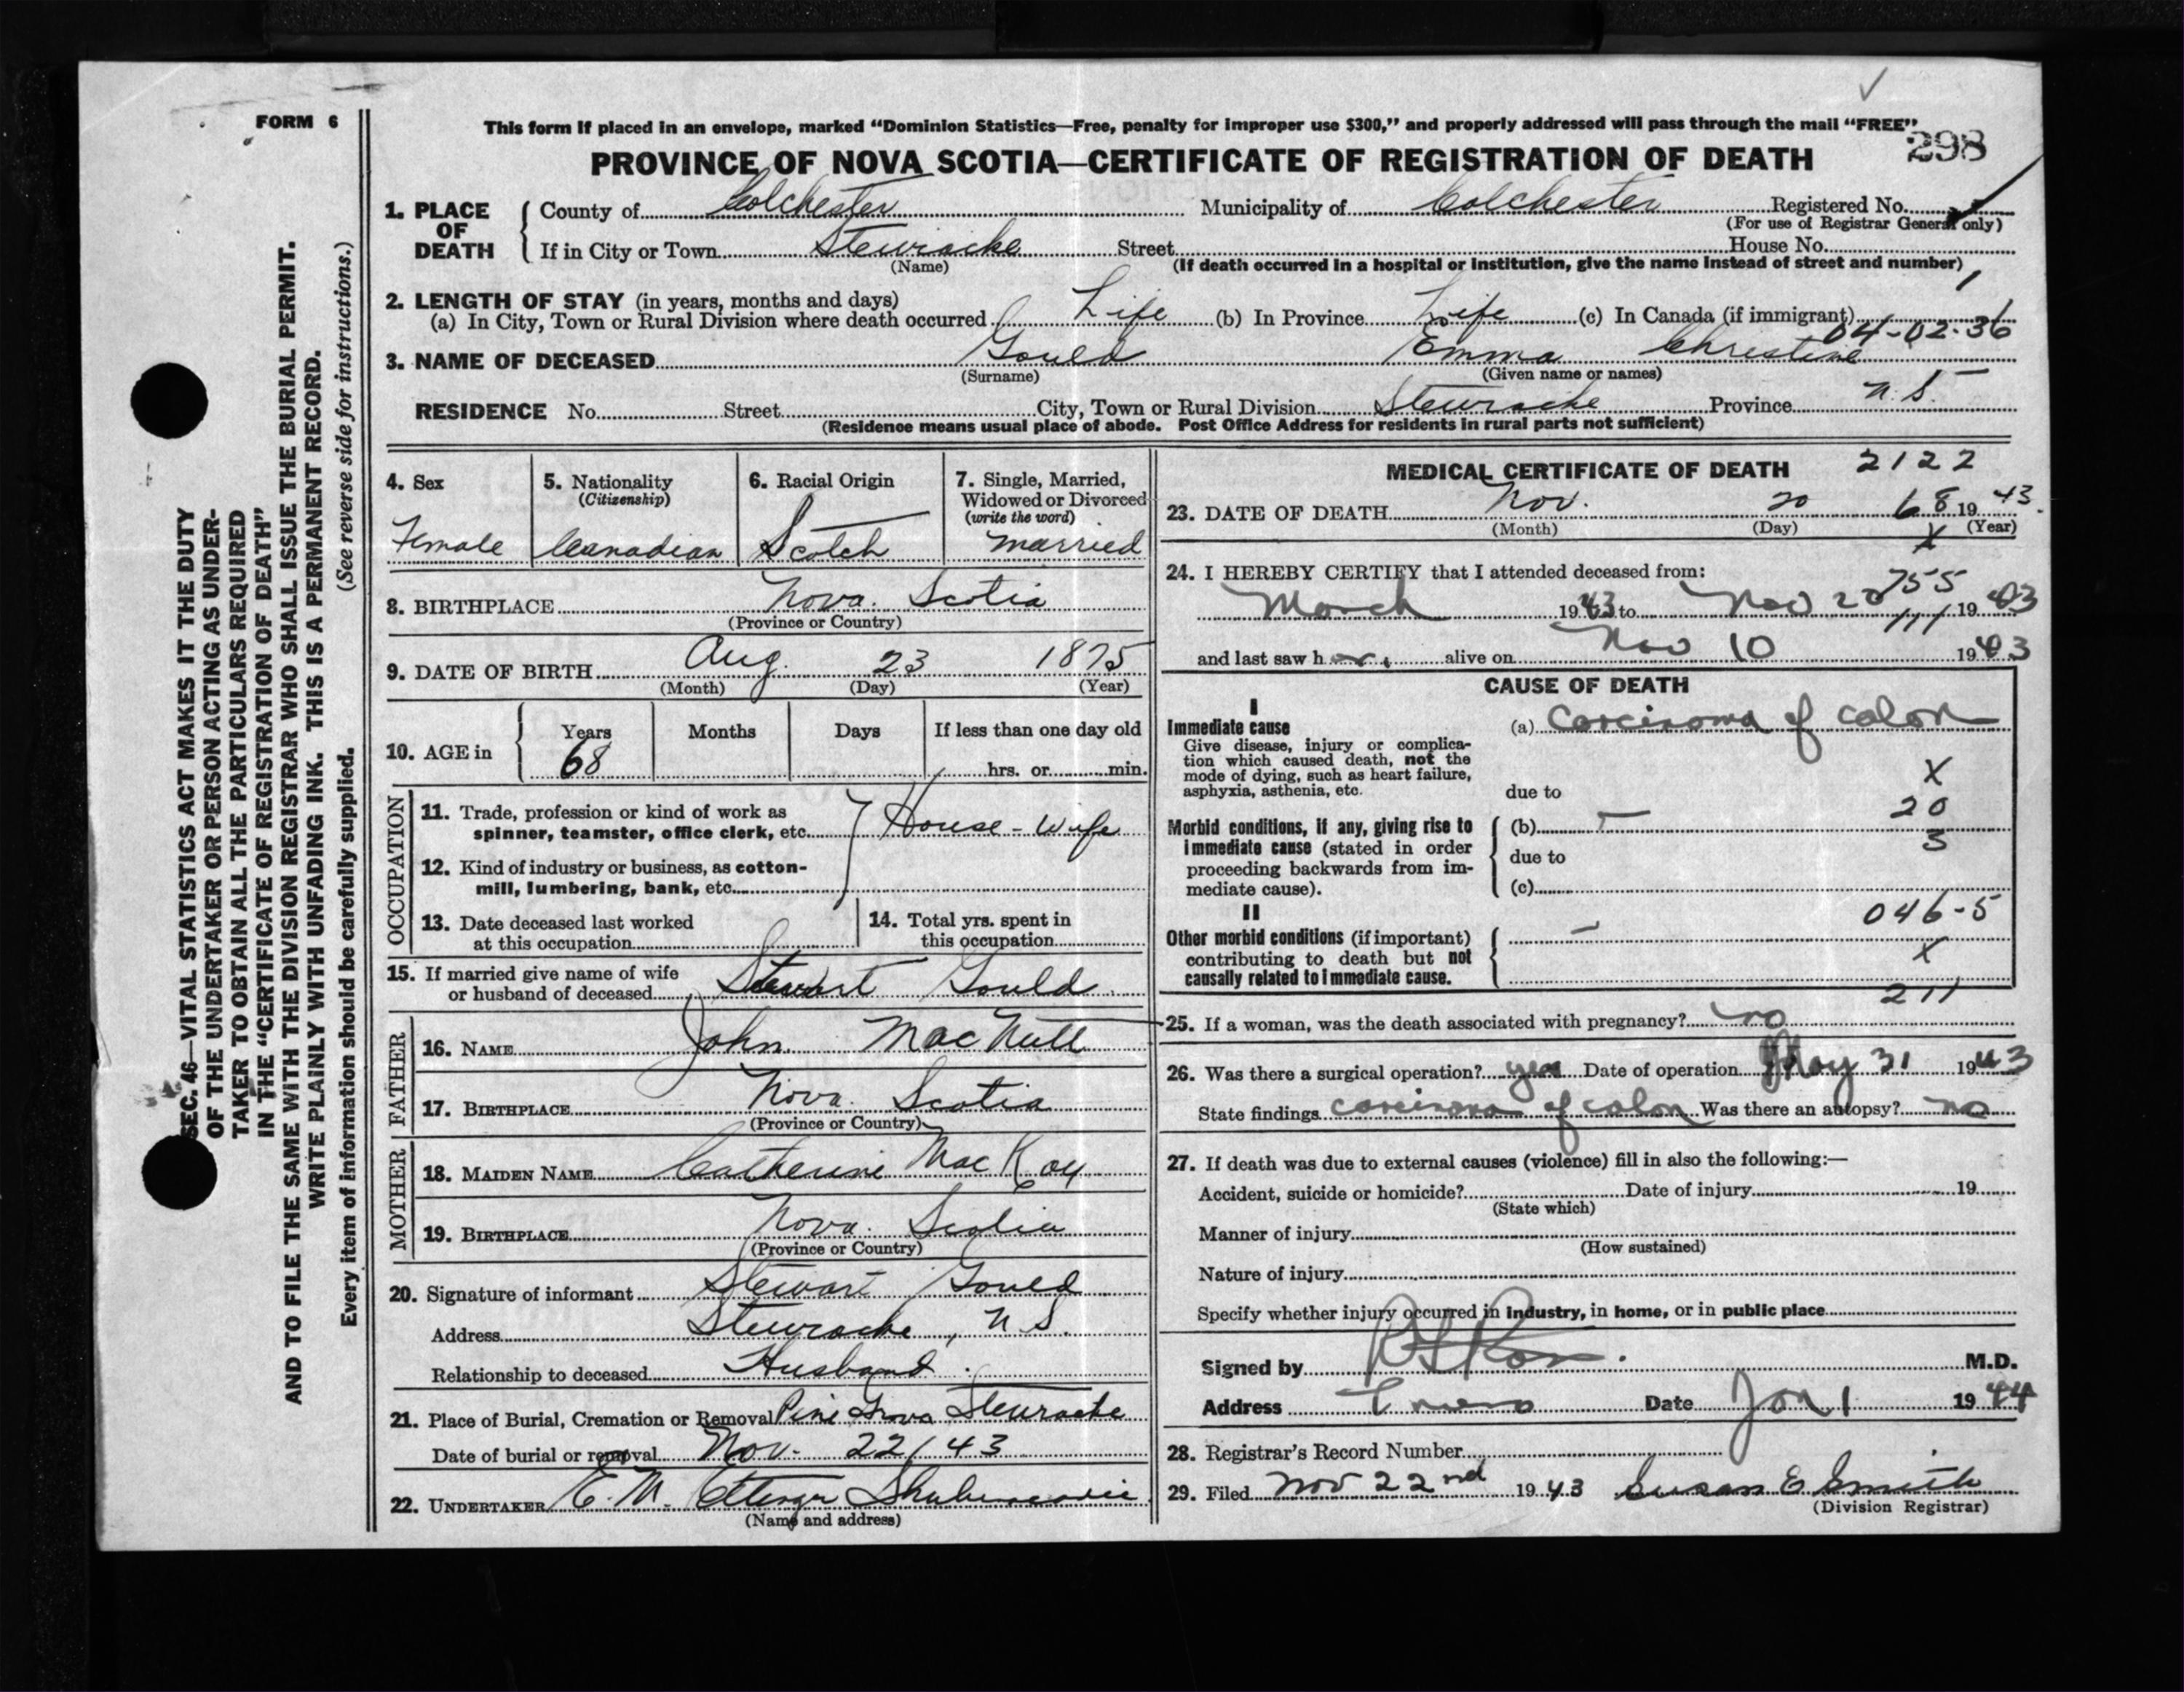 FORM 6
This form if placed in an envelope, marked “Dominion Statistics—Free, penalty for improper use $300,” and properly addressed will pass through the mail “FREE”
298
PROVINCE OF NOVA SCOTIA—CERTIFICATE OF REGISTRATION OF DEATH
SEC. 46—VITAL STATISTICS ACT MAKES IT THE DUTY
OF THE UNDERTAKER OR PERSON ACTING AS UNDER-
TAKER TO OBTAIN ALL THE PARTICULARS REQUIRED
IN THE “CERTIFICATE OF REGISTRATION OF DEATH”
AND TO FILE THE SAME WITH THE DIVISION REGISTRAR WHO SHALL ISSUE THE BURIAL PERMIT.
WRITE PLAINLY WITH UNFADING INK. THIS IS A PERMANENT RECORD.
Every item of information should be carefully supplied. (See reverse side for instructions.)
1. PLACE OF DEATH
County of Colchester Municipality of Colchester Registered No.
(For use of Registrar General only)
If in City or Town Stewiacke Street House No.
(Name) (If death occurred in a hospital or institution, give the name instead of street and number)
2. LENGTH OF STAY (in years, months and days)
(a) In City, Town or Rural Division where death occurred Life (b) In Province Life (c) In Canada (if immigrant)
04-02-36
3. NAME OF DECEASED Gould Emma Christine
(Surname) (Given name or names)
RESIDENCE No. Street City, Town or Rural Division Stewiacke Province N.S.
(Residence means usual place of abode. Post Office Address for residents in rural parts not sufficient)
4. Sex
Female
5. Nationality
(Citizenship)
Canadian
6. Racial Origin
Scotch
7. Single, Married,
Widowed or Divorced
(write the word)
married
8. BIRTHPLACE Nova Scotia
(Province or Country)
9. DATE OF BIRTH Aug. 23 1875
(Month) (Day) (Year)
10. AGE in
Years Months Days If less than one day old
68 hrs. or min.
OCCUPATION
11. Trade, profession or kind of work as
spinner, teamster, office clerk, etc. House-wife
12. Kind of industry or business, as cotton-
mill, lumbering, bank, etc.
13. Date deceased last worked
at this occupation
14. Total yrs. spent in
this occupation
15. If married give name of wife
or husband of deceased Stewart Gould
FATHER
16. NAME John MacNutt
17. BIRTHPLACE Nova Scotia
(Province or Country)
MOTHER
18. MAIDEN NAME Catherine MacKay
19. BIRTHPLACE Nova Scotia
(Province or Country)
20. Signature of informant Stewart Gould
Address Stewiacke, N.S.
Relationship to deceased Husband.
21. Place of Burial, Cremation or Removal Pine Grove Stewiacke
Date of burial or removal Nov. 22/43
22. UNDERTAKER E. M. Ettinger Shubenacadie
(Name and address)
MEDICAL CERTIFICATE OF DEATH 2122
23. DATE OF DEATH Nov. 20 68 1943.
(Month) (Day) X (Year)
24. I HEREBY CERTIFY that I attended deceased from:
755
March 1943 to Nov 20 1943
111
and last saw her alive on Nov 10 1943
CAUSE OF DEATH
I
Immediate cause
Give disease, injury or complica-
tion which caused death, not the
mode of dying, such as heart failure,
asphyxia, asthenia, etc.
(a) Carcinoma of colon
X
due to
20
Morbid conditions, if any, giving rise to
immediate cause (stated in order
proceeding backwards from im-
mediate cause).
(b) —
3
due to
(c)
II
046-5
Other morbid conditions (if important)
contributing to death but not
causally related to immediate cause.
—
X
211
25. If a woman, was the death associated with pregnancy? no
26. Was there a surgical operation? yes Date of operation May 31 1943
State findings carcinoma of colon Was there an autopsy? no
27. If death was due to external causes (violence) fill in also the following:—
Accident, suicide or homicide? Date of injury 19
(State which)
Manner of injury
(How sustained)
Nature of injury
Specify whether injury occurred in industry, in home, or in public place
Signed by M.D.
Address Truro Date Jan 1 1944
28. Registrar’s Record Number
29. Filed Nov 22nd 1943 Susan E Smith
(Division Registrar)